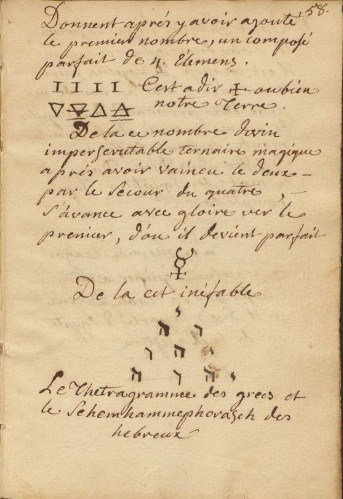 158.
Donnent aprés y avoir agouté
le premier nombre, un composé
parfait de 4. Elemens.
I I I I Cest adir ♁ ou bien
🜄 🜃 🜂 🜁 notre Terre.
De la ce nombre divin
imperscrutable ternaire magique
aprés avoir vaincu le deux
par le Secour du quatre,
S'avance avec gloire ver le
premier, d'ou il devient parfait
☿
De la cet inéfable
י
יה
יהו
יהוה
Le Thetragramme des grecs et
le Sehemhammephorasch des
hebreux